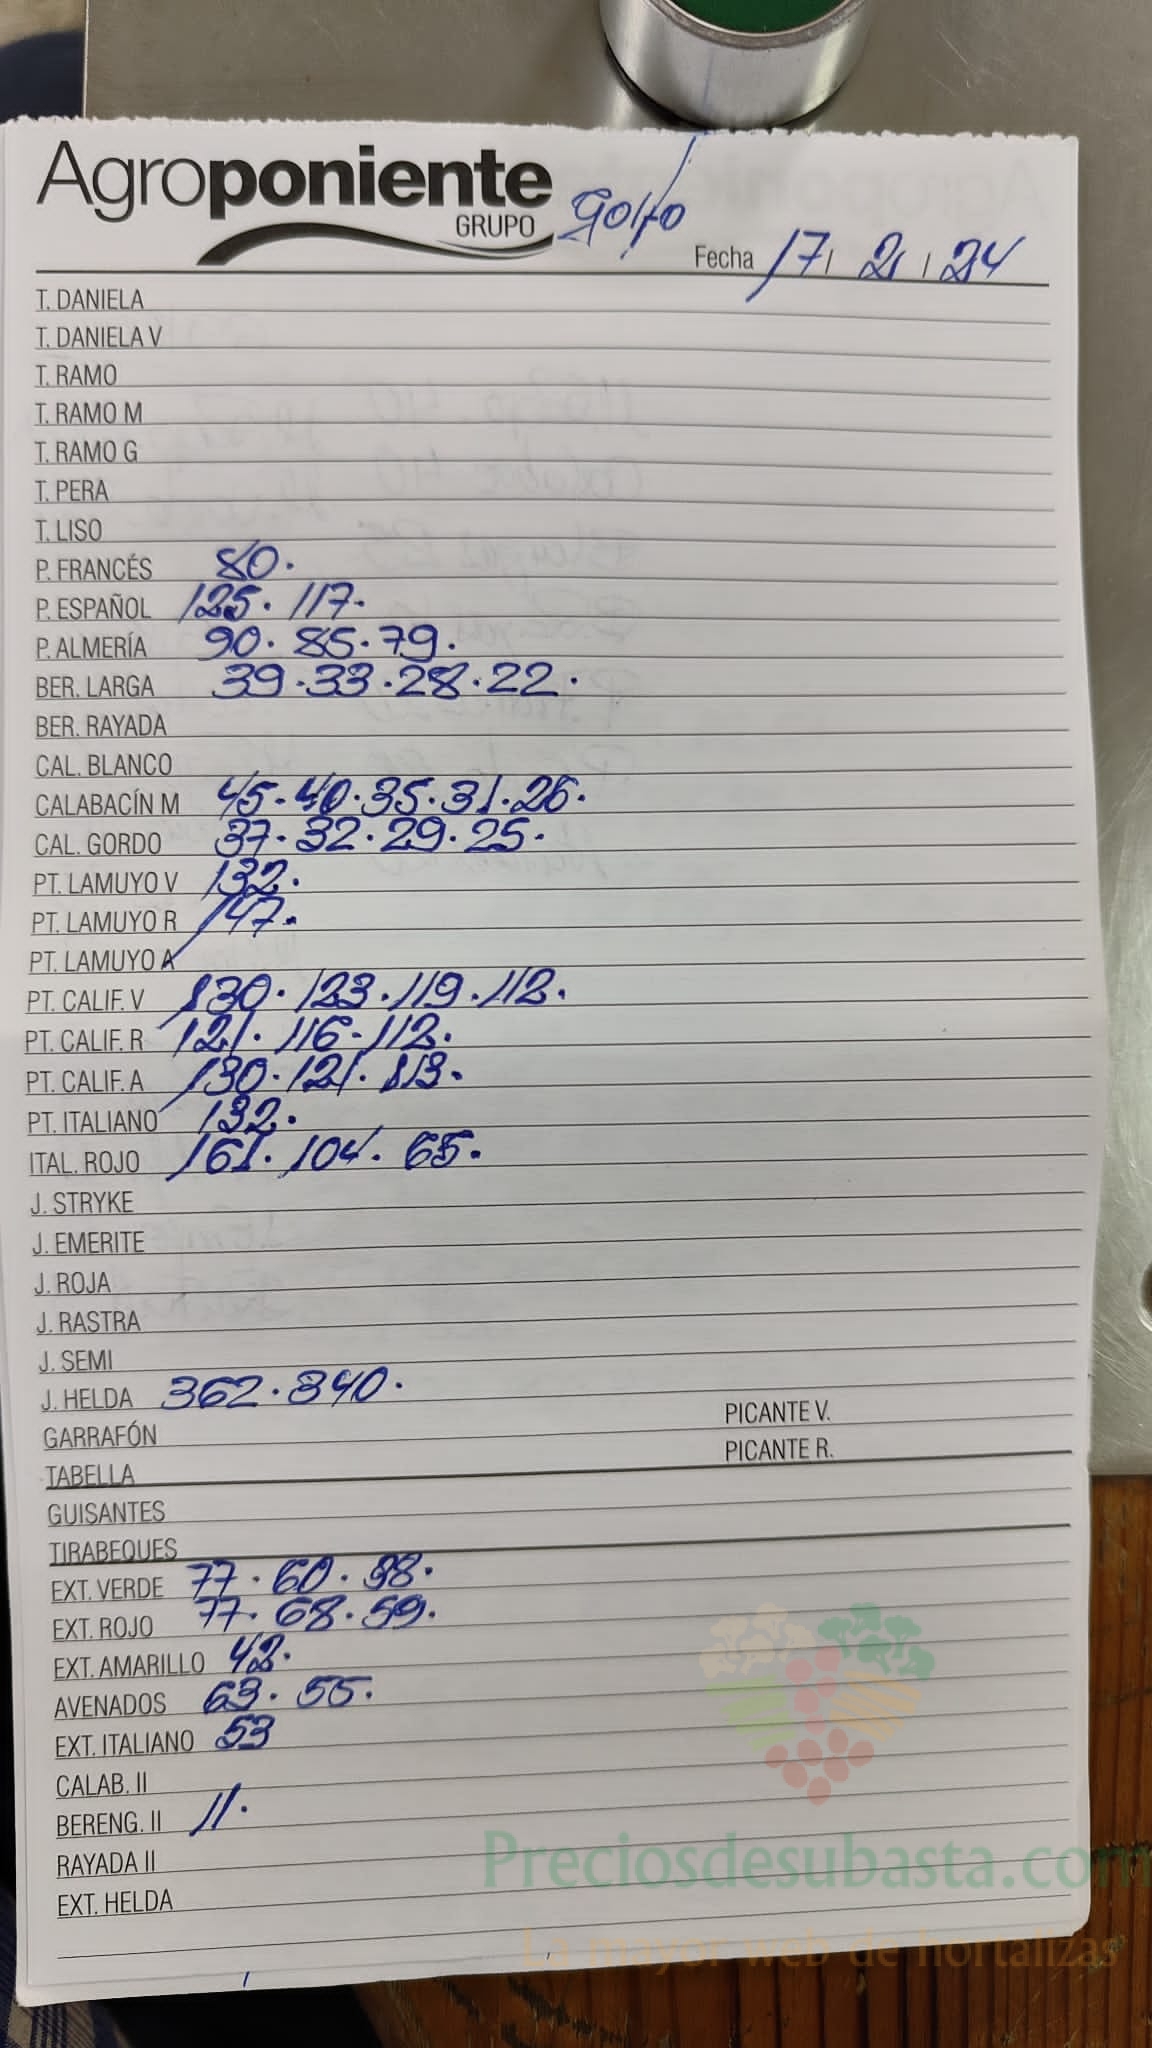 Agroponiente
GRUPO
Golfo
Fecha 17 / 2 / 24
T. DANIELA
T. DANIELA V
T. RAMO
T. RAMO M
T. RAMO G
T. PERA
T. LISO
P. FRANCÉS 80.
P. ESPAÑOL 125. 117.
P. ALMERÍA 90. 85. 79.
BER. LARGA 39. 33. 28. 22.
BER. RAYADA
CAL. BLANCO
CALABACÍN M 45. 40. 35. 31. 26.
CAL. GORDO 37. 32. 29. 25.
PT. LAMUYO V 132.
PT. LAMUYO R 147.
PT. LAMUYO A
PT. CALIF. V 130. 123. 119. 112.
PT. CALIF. R 121. 116. 112.
PT. CALIF. A 130. 121. 113.
PT. ITALIANO 132.
ITAL. ROJO 161. 104. 65.
J. STRYKE
J. EMERITE
J. ROJA
J. RASTRA
J. SEMI
J. HELDA 362. 340.
PICANTE V.
GARRAFÓN
PICANTE R.
TABELLA
GUISANTES
TIRABEQUES
EXT. VERDE 77. 60.
EXT. ROJO 77. 68. 59.
EXT. AMARILLO 42.
AVENADOS 63. 55.
EXT. ITALIANO 53
CALAB. II
BERENG. II 11.
RAYADA II
EXT. HELDA
Preciosdesubasta.com
La mayor web de hortalizas